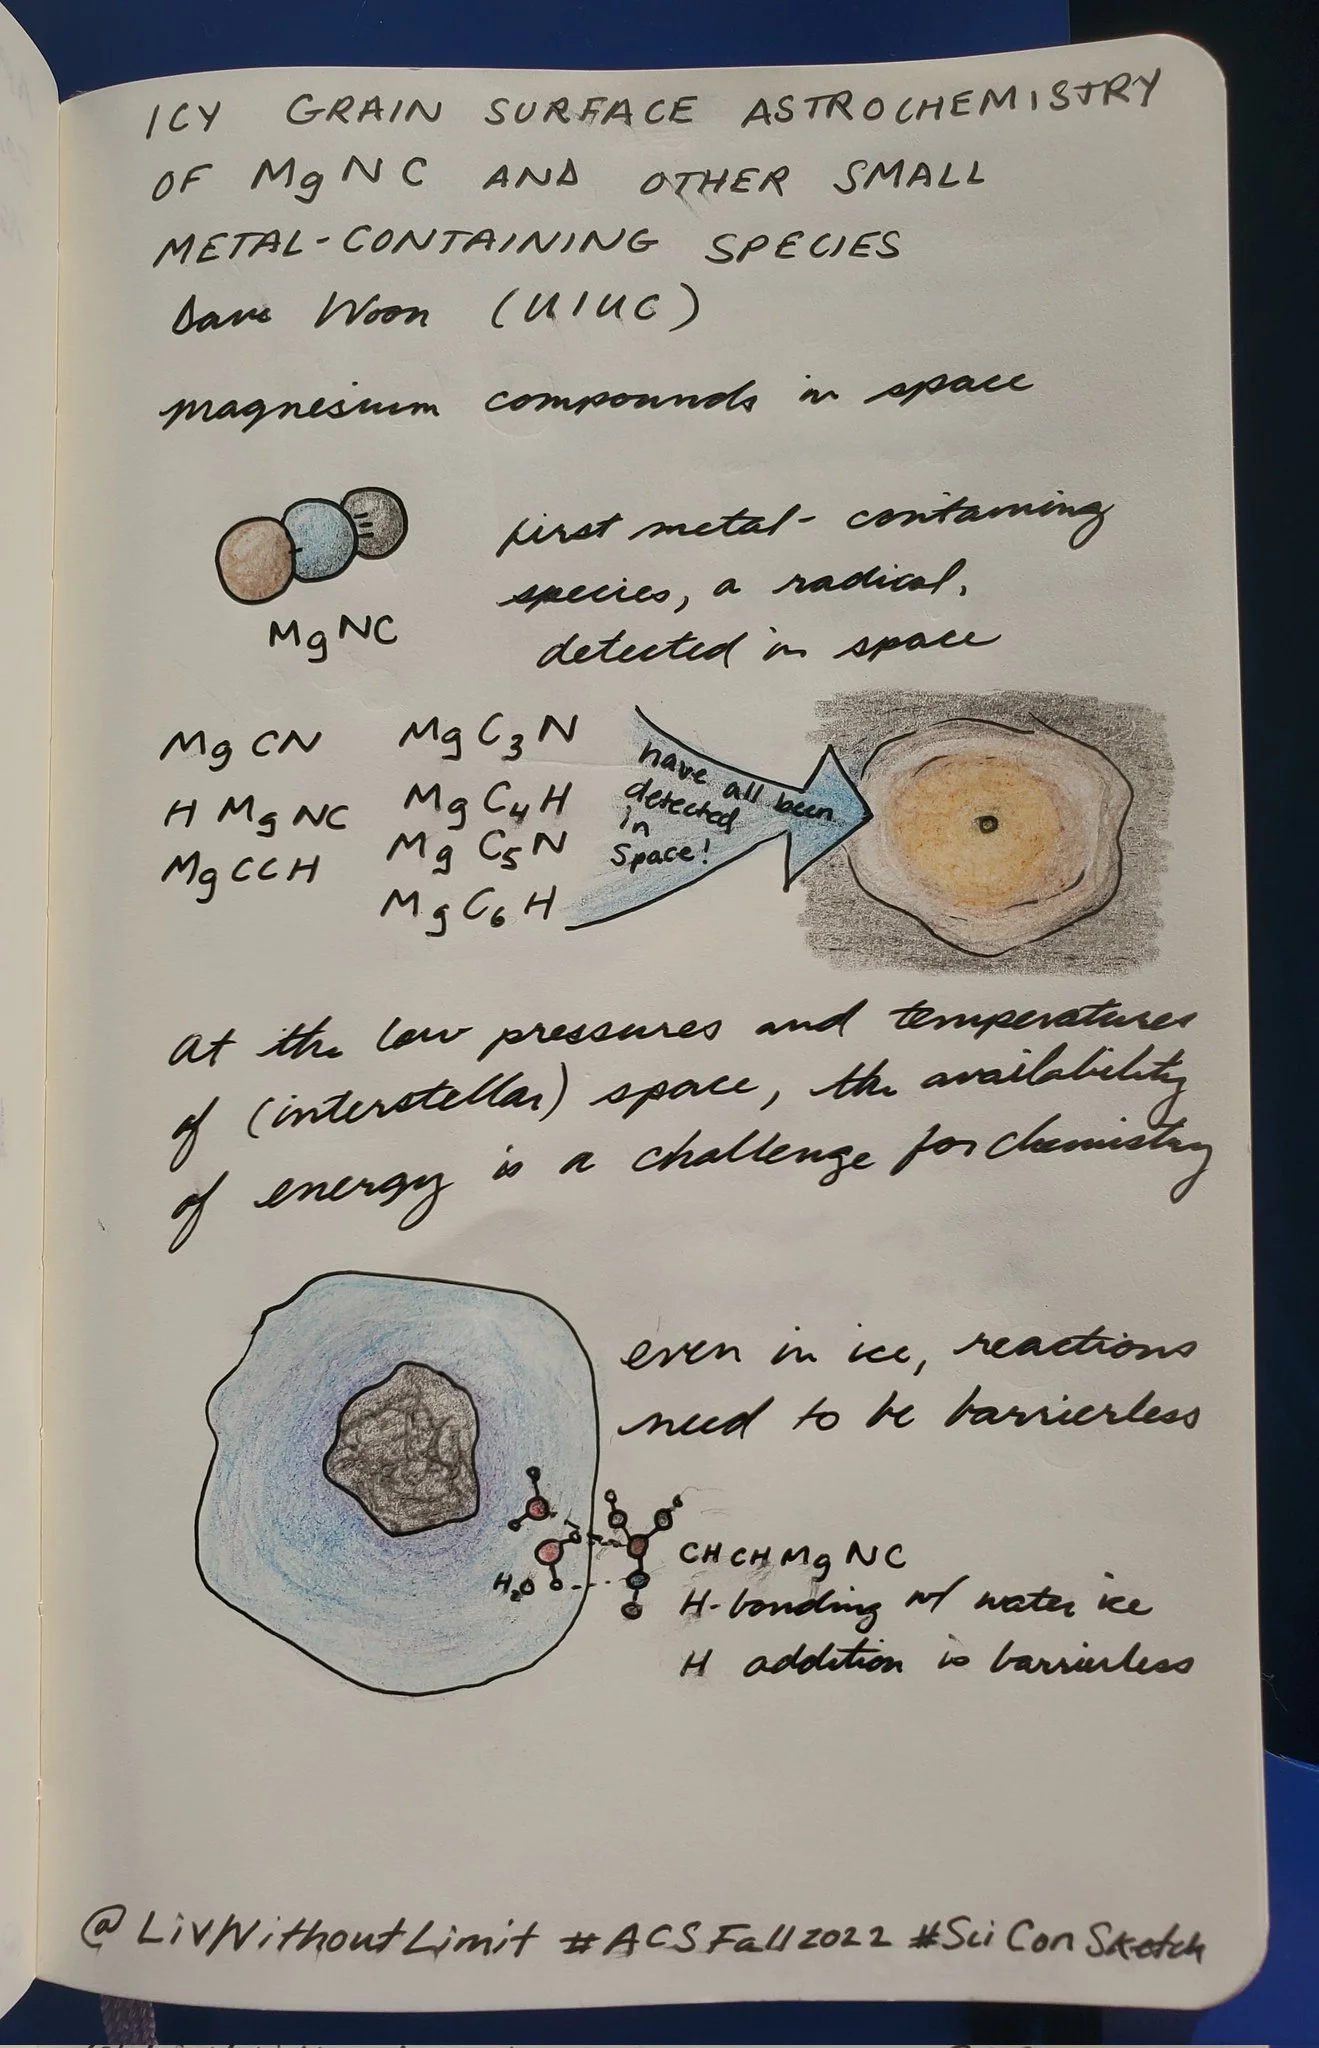 ICY GRAIN SURFACE ASTROCHEMISTRY
OF MgNC AND OTHER SMALL
METAL-CONTAINING SPECIES
Dave Woon (UIUC)
magnesium compounds in space
first metal-containing
species, a radical,
detected in space
MgNC
MgCN
HMgNC
MgCCH
MgC₃N
MgC₄H
MgC₅N
MgC₆H
have all been
detected
in
Space!
At the low pressures and temperatures
of (interstellar) space, the availability
of energy is a challenge for chemistry
even in ice, reactions
need to be barrierless
H₂O
CHCHMgNC
H-bonding w/ water ice
H addition is barrierless
@LivWithoutLimit #ACSFall2022 #SciConSketch